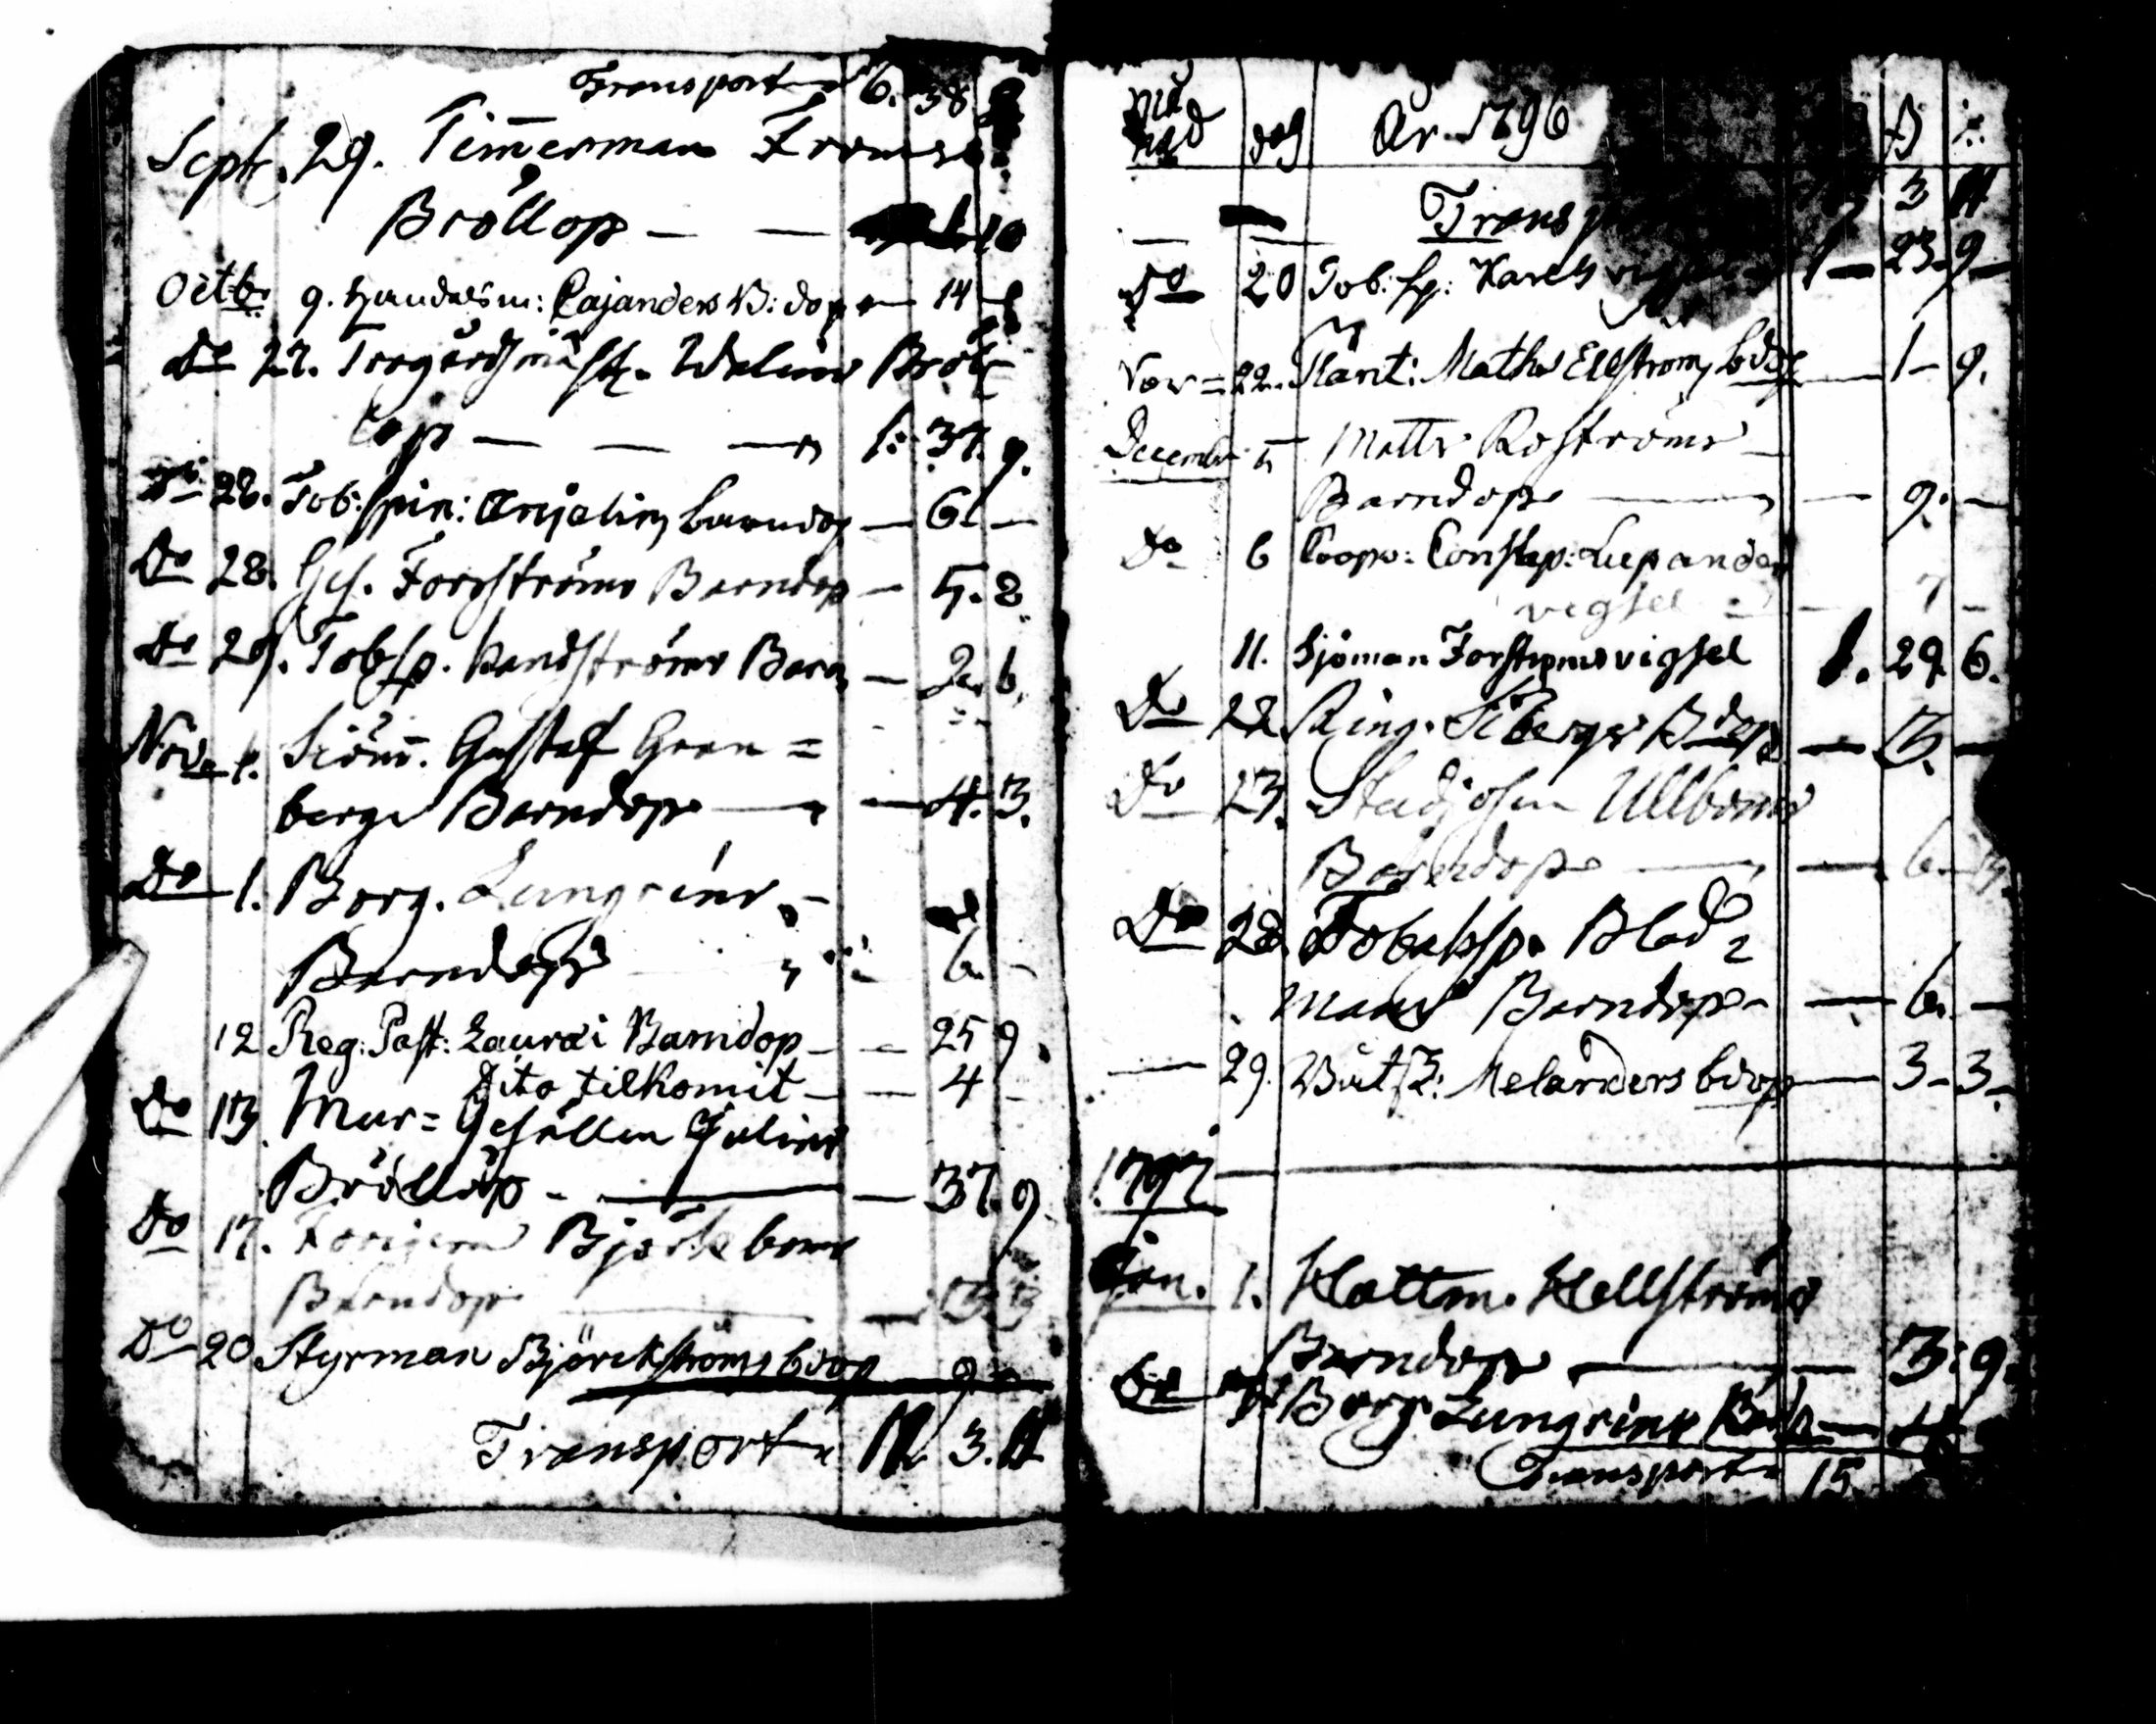 Transport 6. 38
Sept. 29. Timerman Froms
Bröllop — — 10
Octb. 9. Handelsm: Cajanders B: dop — 14
Do 27. Tregårdsmäst. Welins Bröl
lop — — — 1. 37. 9.
Do 28. Tob: spin: Barndop — 6. —
Do 28. Ges. Forsströms Barndop — 5. 2.
Do 29. Tobsp. Sandströms Barn — 2. 6.
Nov. 1. Siöm. Gustaf Gran =
bergs Barndop — — 4. 3.
Do 1. Borg. Lungrins
Barndop 6. -
12 Reg: Past: Laurœi Barndop — — 25 9.
Dito tilkomit — — 4 -
Do 13. Mur= Gesällen Julins
Bröllop - — — 37. 9.
Do 17. Björkboms
Barndop —
Do 20 Styrman Björckströms bdop 9 -
Transport 11. 3. 11
Må
nad dag År 1796 ß
Transp 3 11
Do 20 Tob: sp: Karels 1 — 23. 9 —
Nov = 22. Maths Ellström bdop — 1 - 9.
December 5 Matts Roströms
Barndop — — 9. —
Do 6 Coopv: Constap: Lupander
vigsel — 7 -
11. Sjöman Forstroms vigsel 1. 29. 6.
Do 22 Ring. Sibergs Bdop — 13. —
Do 23. Ullboms
Barndop — — 6.
Do 28. Tobaksp. Blad
Mans Barndop — — 6. —
— 29. Båtsk: Melanders bdop — 3 - 3 -
1797
Jan. 1. Hattm. Hellströms
Barndop — — 3: 9.
Borg. Lungrins
Transport 15